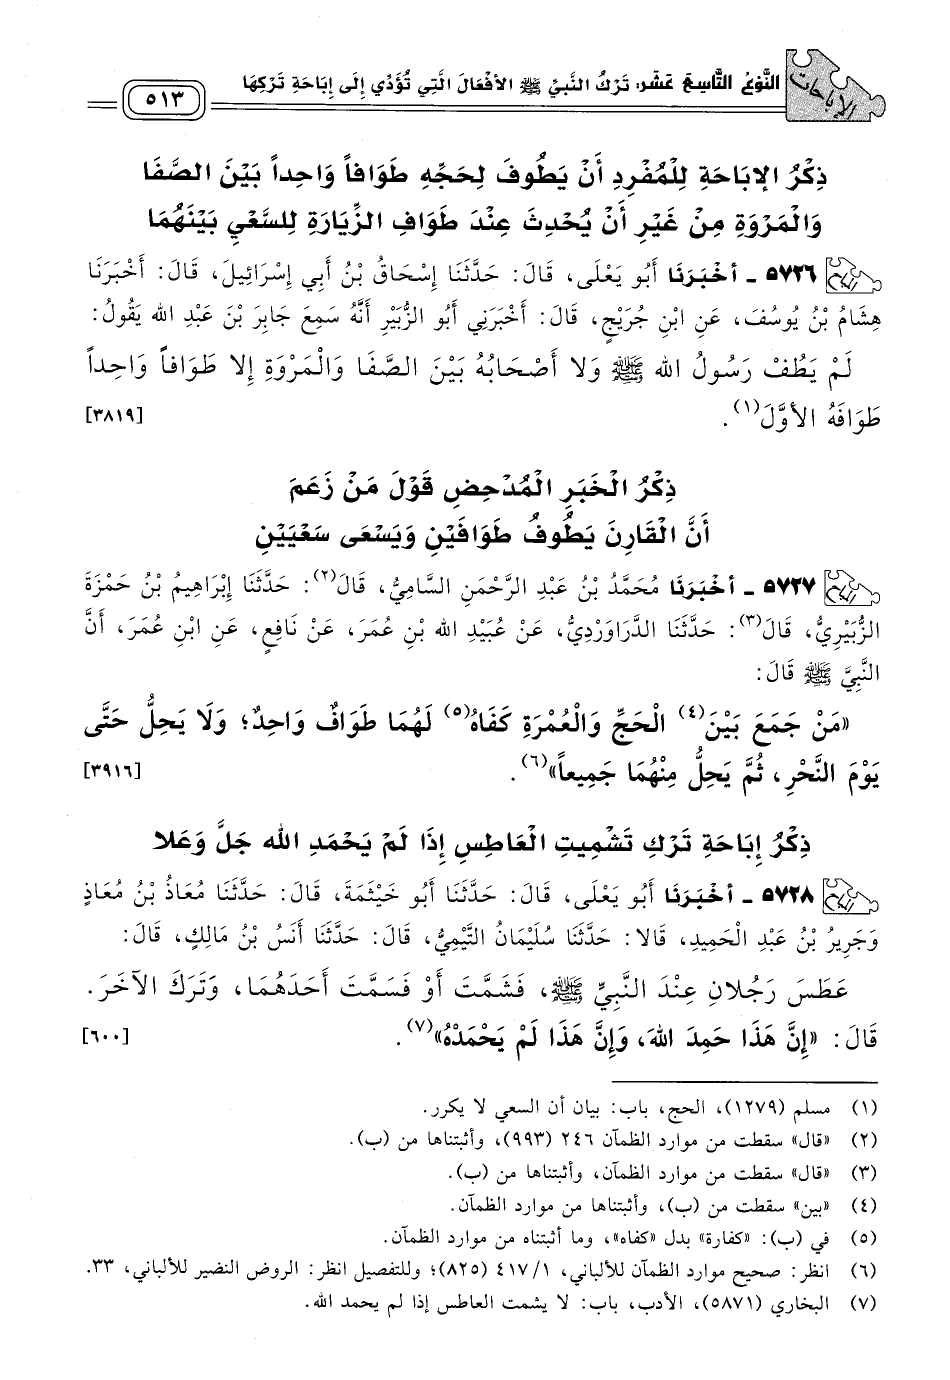 الإباحات
النَّوْعُ التَّاسِعَ عَشَرَ: تَرْكُ النَّبِيِّ ﷺ الأفْعَالَ الَّتِي تُؤَدِّي إِلَى إِبَاحَةِ تَرْكِهَا
٥١٣
ذِكْرُ الإبَاحَةِ لِلْمُفْرِدِ أَنْ يَطُوفَ لِحَجِّهِ طَوَافاً وَاحِداً بَيْنَ الصَّفَا
وَالْمَرْوَةِ مِنْ غَيْرِ أَنْ يُحْدِثَ عِنْدَ طَوَافِ الزِّيَارَةِ لِلسَّعْيِ بَيْنَهُمَا
٥٧٢٦ ـ أخْبَرَنَا أَبُو يَعْلَى، قَالَ: حَدَّثَنَا إِسْحَاقُ بْنُ أَبِي إِسْرَائِيلَ، قَالَ: أَخْبَرَنَا
هِشَامُ بْنُ يُوسُفَ، عَنِ ابْنِ جُرَيْجٍ، قَالَ: أَخْبَرَنِي أَبُو الزُّبَيْرِ أَنَّهُ سَمِعَ جَابِرَ بْنَ عَبْدِ اللهِ يَقُولُ:
لَمْ يَطُفْ رَسُولُ اللهِ ﷺ وَلا أَصْحَابُهُ بَيْنَ الصَّفَا وَالْمَرْوَةِ إِلا طَوَافاً وَاحِداً
طَوَافَهُ الأوَّلَ(١). [٣٨١٩]
ذِكْرُ الْخَبَرِ الْمُدْحِضِ قَوْلَ مَنْ زَعَمَ
أَنَّ الْقَارِنَ يَطُوفُ طَوَافَيْنِ وَيَسْعَى سَعْيَيْنِ
٥٧٢٧ ـ أخْبَرَنَا مُحَمَّدُ بْنُ عَبْدِ الرَّحْمَنِ السَّامِيُّ، قَالَ(٢): حَدَّثَنَا إِبْرَاهِيمُ بْنُ حَمْزَةَ
الزُّبَيْرِيُّ، قَالَ(٣): حَدَّثَنَا الدَّرَاوَرْدِيُّ، عَنْ عُبَيْدِ اللهِ بْنِ عُمَرَ، عَنْ نَافِعٍ، عَنِ ابْنِ عُمَرَ، أَنَّ
النَّبِيَّ ﷺ قَالَ:
«مَنْ جَمَعَ بَيْنَ(٤) الْحَجِّ وَالْعُمْرَةِ كَفَاهُ(٥) لَهُمَا طَوَافٌ وَاحِدٌ؛ وَلَا يَحِلُّ حَتَّى
يَوْمَ النَّحْرِ، ثُمَّ يَحِلُّ مِنْهُمَا جَمِيعاً»(٦). [٣٩١٦]
ذِكْرُ إِبَاحَةِ تَرْكِ تَشْمِيتِ الْعَاطِسِ إِذَا لَمْ يَحْمَدِ اللهَ جَلَّ وَعَلا
٥٧٢٨ ـ أخْبَرَنَا أَبُو يَعْلَى، قَالَ: حَدَّثَنَا أَبُو خَيْثَمَةَ، قَالَ: حَدَّثَنَا مُعَاذُ بْنُ مُعَاذٍ
وَجَرِيرُ بْنُ عَبْدِ الْحَمِيدِ، قَالا: حَدَّثَنَا سُلَيْمَانُ التَّيْمِيُّ، قَالَ: حَدَّثَنَا أَنَسُ بْنُ مَالِكٍ، قَالَ:
عَطَسَ رَجُلانِ عِنْدَ النَّبِيِّ ﷺ، فَشَمَّتَ أَوْ فَسَمَّتَ أَحَدَهُمَا، وَتَرَكَ الآخَرَ.
قَالَ: «إِنَّ هَذَا حَمِدَ اللهَ، وَإِنَّ هَذَا لَمْ يَحْمَدْهُ»(٧). [٦٠٠]
(١) مسلم (١٢٧٩)، الحج، باب: بيان أن السعي لا يكرر.
(٢) «قال» سقطت من موارد الظمآن ٢٤٦ (٩٩٣)، وأثبتناها من (ب).
(٣) «قال» سقطت من موارد الظمآن، وأثبتناها من (ب).
(٤) «بين» سقطت من (ب)، وأثبتناها من موارد الظمآن.
(٥) في (ب): «كفارة» بدل «كفاه»، وما أثبتناه من موارد الظمآن.
(٦) انظر: صحيح موارد الظمآن للألباني، ٤١٧/١ (٨٢٥)؛ وللتفصيل انظر: الروض النضير للألباني، ٣٣.
(٧) البخاري (٥٨٧١)، الأدب، باب: لا يشمت العاطس إذا لم يحمد الله.